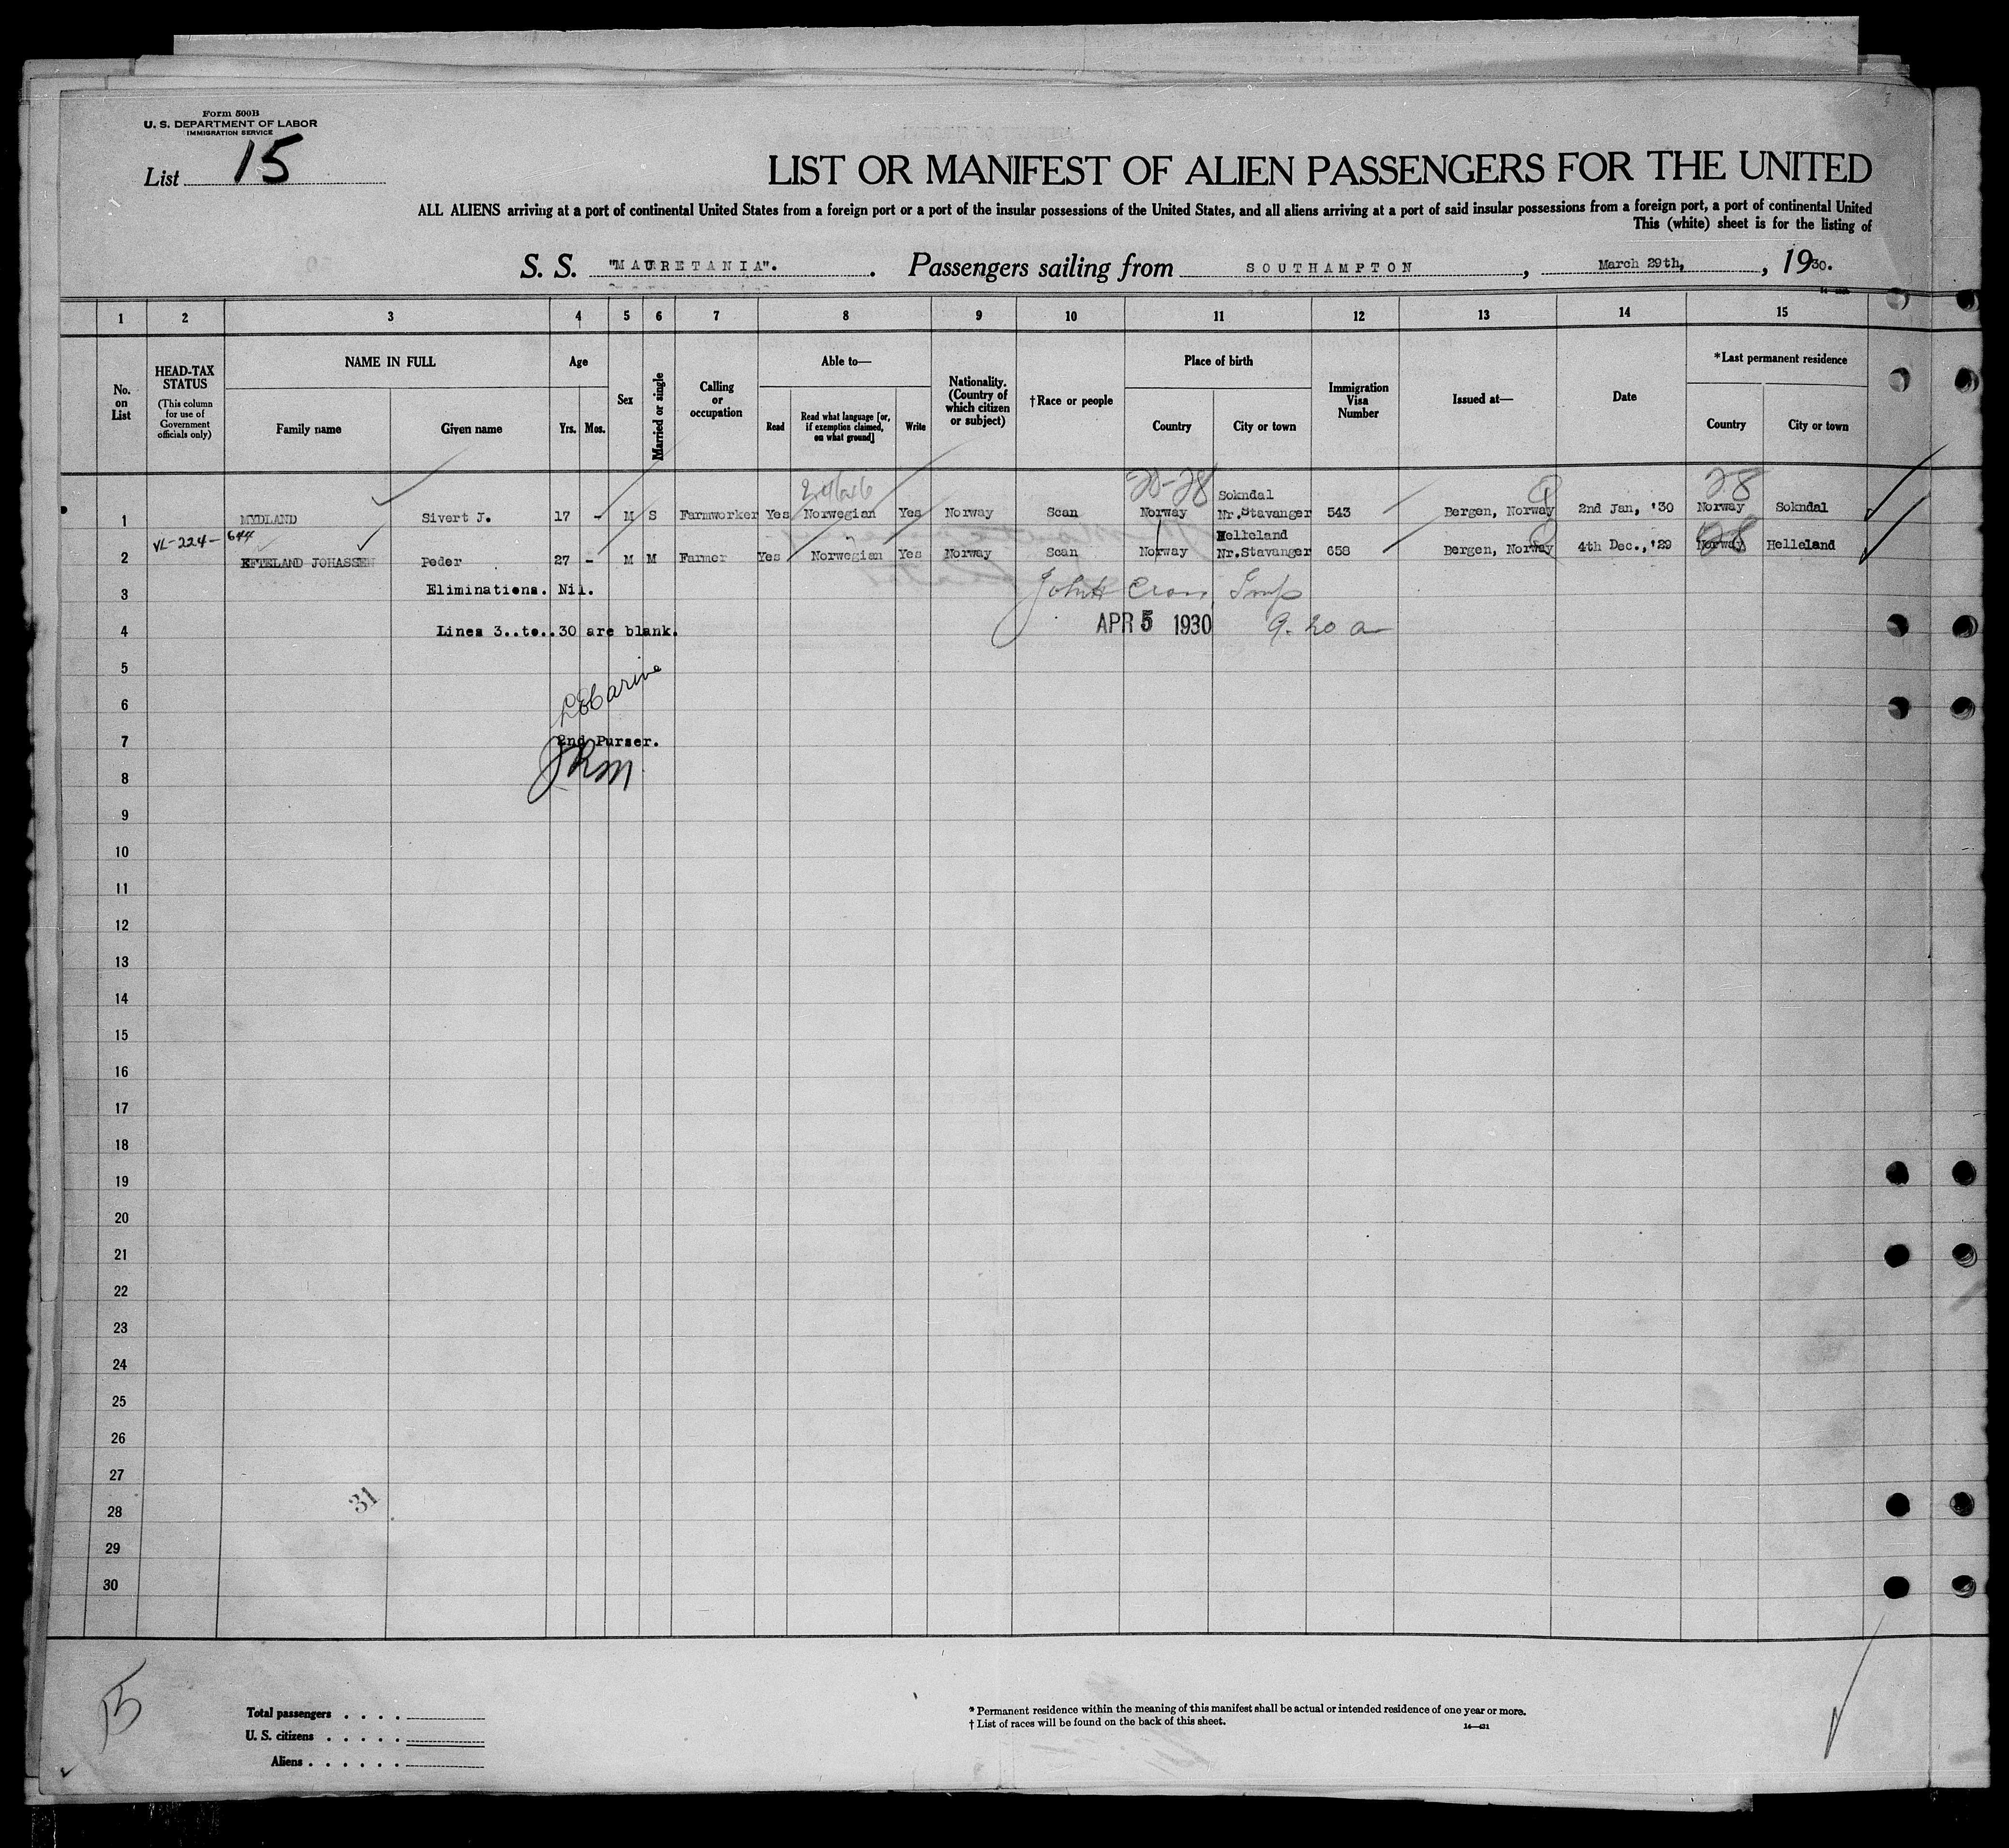 Form 500B
U. S. DEPARTMENT OF LABOR
IMMIGRATION SERVICE
List 15
LIST OR MANIFEST OF ALIEN PASSENGERS FOR THE UNITED
ALL ALIENS arriving at a port of continental United States from a foreign port or a port of the insular possessions of the United States, and all aliens arriving at a port of said insular possessions from a foreign port, a port of continental United
This (white) sheet is for the listing of
S. S. "MAURETANIA". Passengers sailing from SOUTHAMPTON, March 29th, , 1930.
1 2 3 4 5 6 7 8 9 10 11 12 13 14 15
No. on List
HEAD-TAX STATUS
(This column for use of Government officials only)
NAME IN FULL
Family name Given name
Age
Yrs. Mos.
Sex
Married or single
Calling or occupation
Able to—
Read
Read what language [or, if exemption claimed, on what ground]
Write
Nationality. (Country of which citizen or subject)
†Race or people
Place of birth
Country City or town
Immigration Visa Number
Issued at—
Date
*Last permanent residence
Country City or town
20-28 28
Sokndal
1 MYDLAND Sivert J. 17 - M S Farmworker Yes Norwegian Yes Norway Scan Norway Nr.Stavanger 543 Bergen, Norway 2nd Jan, '30 Norway Sokndal
VL-224-644 Helleland 28
2 EFTELAND JOHASSEN Peder 27 - M M Farmer Yes Norwegian Yes Norway Scan Norway Nr.Stavanger 658 Bergen, Norway 4th Dec.,'29 Norway Helleland
3 Eliminations. Nil. John Cross Insp
4 Lines 3..to..30 are blank. APR 5 1930 9.20 a
5
6
7 2nd Purser.
JRM
8
9
10
11
12
13
14
15
16
17
18
19
20
21
22
23
24
25
26
27
28 31
29
30
15
Total passengers . . . .
U. S. citizens . . . . .
Aliens . . . . . .
* Permanent residence within the meaning of this manifest shall be actual or intended residence of one year or more.
† List of races will be found on the back of this sheet.
14—421